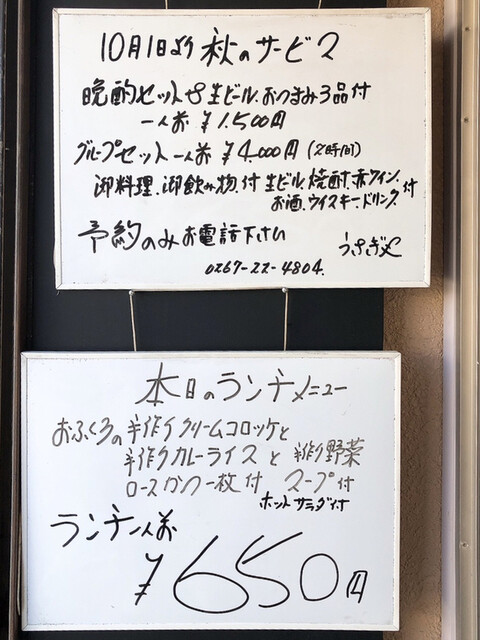 10月1日より 秋のサービス
晩酌セット 生ビール.おつまみ3品付
一人前 ¥1.500円
グループセット 一人前 ¥4.000円 (2時間)
御料理.御飲み物.付 生ビール.焼酎.赤ワイン.
お酒.ウイスキー.ドリンク.付
予約のみお電話下さい うさぎや
0267-22-4804.
本日のランチメニュー
おふくろの手作りクリームコロッケと
手作りカレーライスと 手作り野菜
ロースカツ一枚付 スープ付
ホットサラダ付
ランチ一人前
¥650円